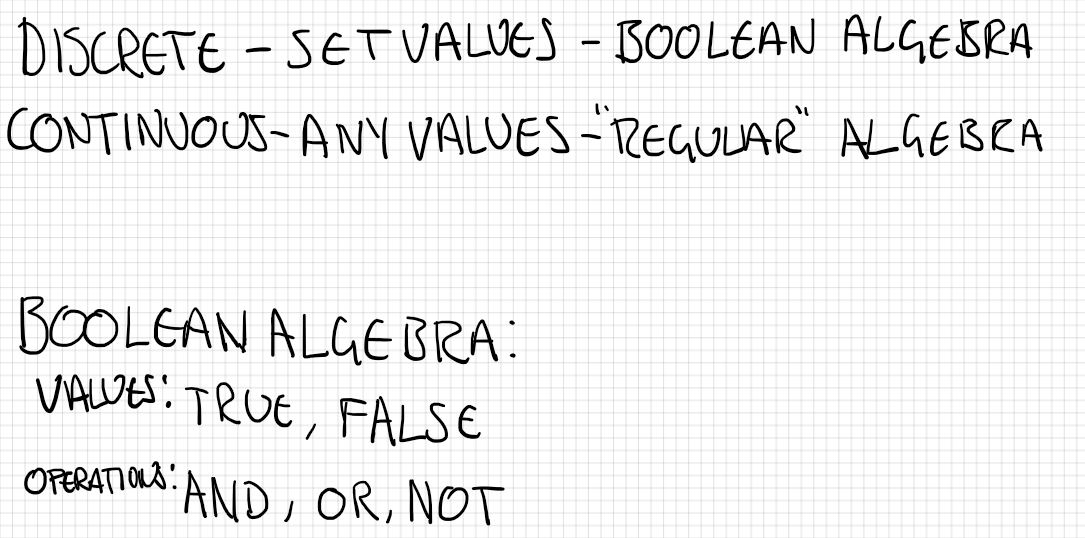 DISCRETE - SET VALUES - BOOLEAN ALGEBRA
CONTINUOUS - ANY VALUES - "REGULAR" ALGEBRA
BOOLEAN ALGEBRA:
VALUES: TRUE, FALSE
OPERATIONS: AND, OR, NOT